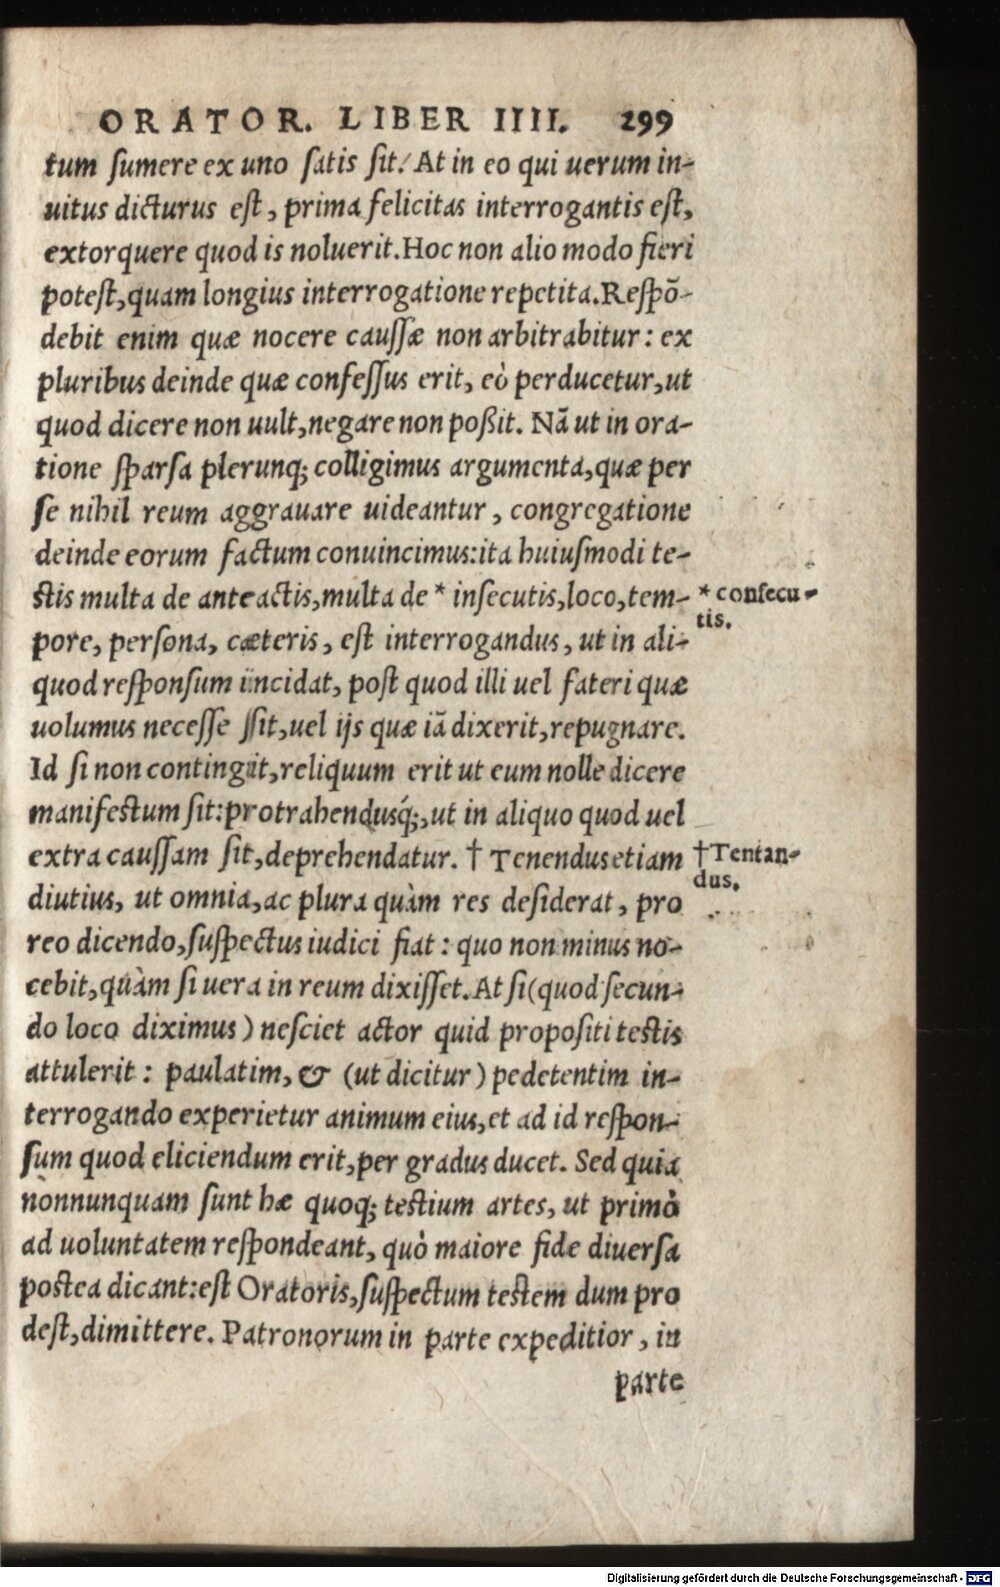 ORATOR. LIBER IIII. 299
tum ſumere ex uno ſatis ſit. At in eo qui uerum in-
uitus dicturus eſt, prima felicitas interrogantis eſt,
extorquere quod is noluerit. Hoc non alio modo fieri
poteſt, quam longius interrogatione repetita. Reſpõ-
debit enim quæ nocere cauſſæ non arbitrabitur: ex
pluribus deinde quæ confeſſus erit, eò perducetur, ut
quod dicere non uult, negare non poßit. Nã ut in ora-
tione ſparſa plerunq; colligimus argumenta, quæ per
ſe nihil reum aggrauare uideantur, congregatione
deinde eorum factum conuincimus: ita huiuſmodi te-
ſtis multa de anteactis, multa de * inſecutis, loco, tem-
* conſecu-
tis.
pore, perſona, cæteris, eſt interrogandus, ut in ali-
quod reſponſum incidat, poſt quod illi uel fateri quæ
uolumus neceſſe ſit, uel ijs quæ iã dixerit, repugnare.
Id ſi non contingit, reliquum erit ut eum nolle dicere
manifeſtum ſit: protrahendusq́;, ut in aliquo quod uel
extra cauſſam ſit, deprehendatur. † Tenendus etiam
† Tentan-
dus.
diutius, ut omnia, ac plura quàm res deſiderat, pro
reo dicendo, ſuſpectus iudici fiat: quo non minus no-
cebit, quàm ſi uera in reum dixiſſet. At ſi (quod ſecun-
do loco diximus) neſciet actor quid propoſiti teſtis
attulerit: paulatim, & (ut dicitur) pedetentim in-
terrogando experietur animum eius, et ad id reſpon-
ſum quod eliciendum erit, per gradus ducet. Sed quia
nònnunquam ſunt hæ quoq; teſtium artes, ut primò
ad uoluntatem reſpondeant, quò maiore fide diuerſa
poſtea dicant: eſt Oratoris, ſuſpectum teſtem dum pro
deſt, dimittere. Patronorum in parte expeditior, in
parte
Digitalisierung gefördert durch die Deutsche Forschungsgemeinschaft - DFG